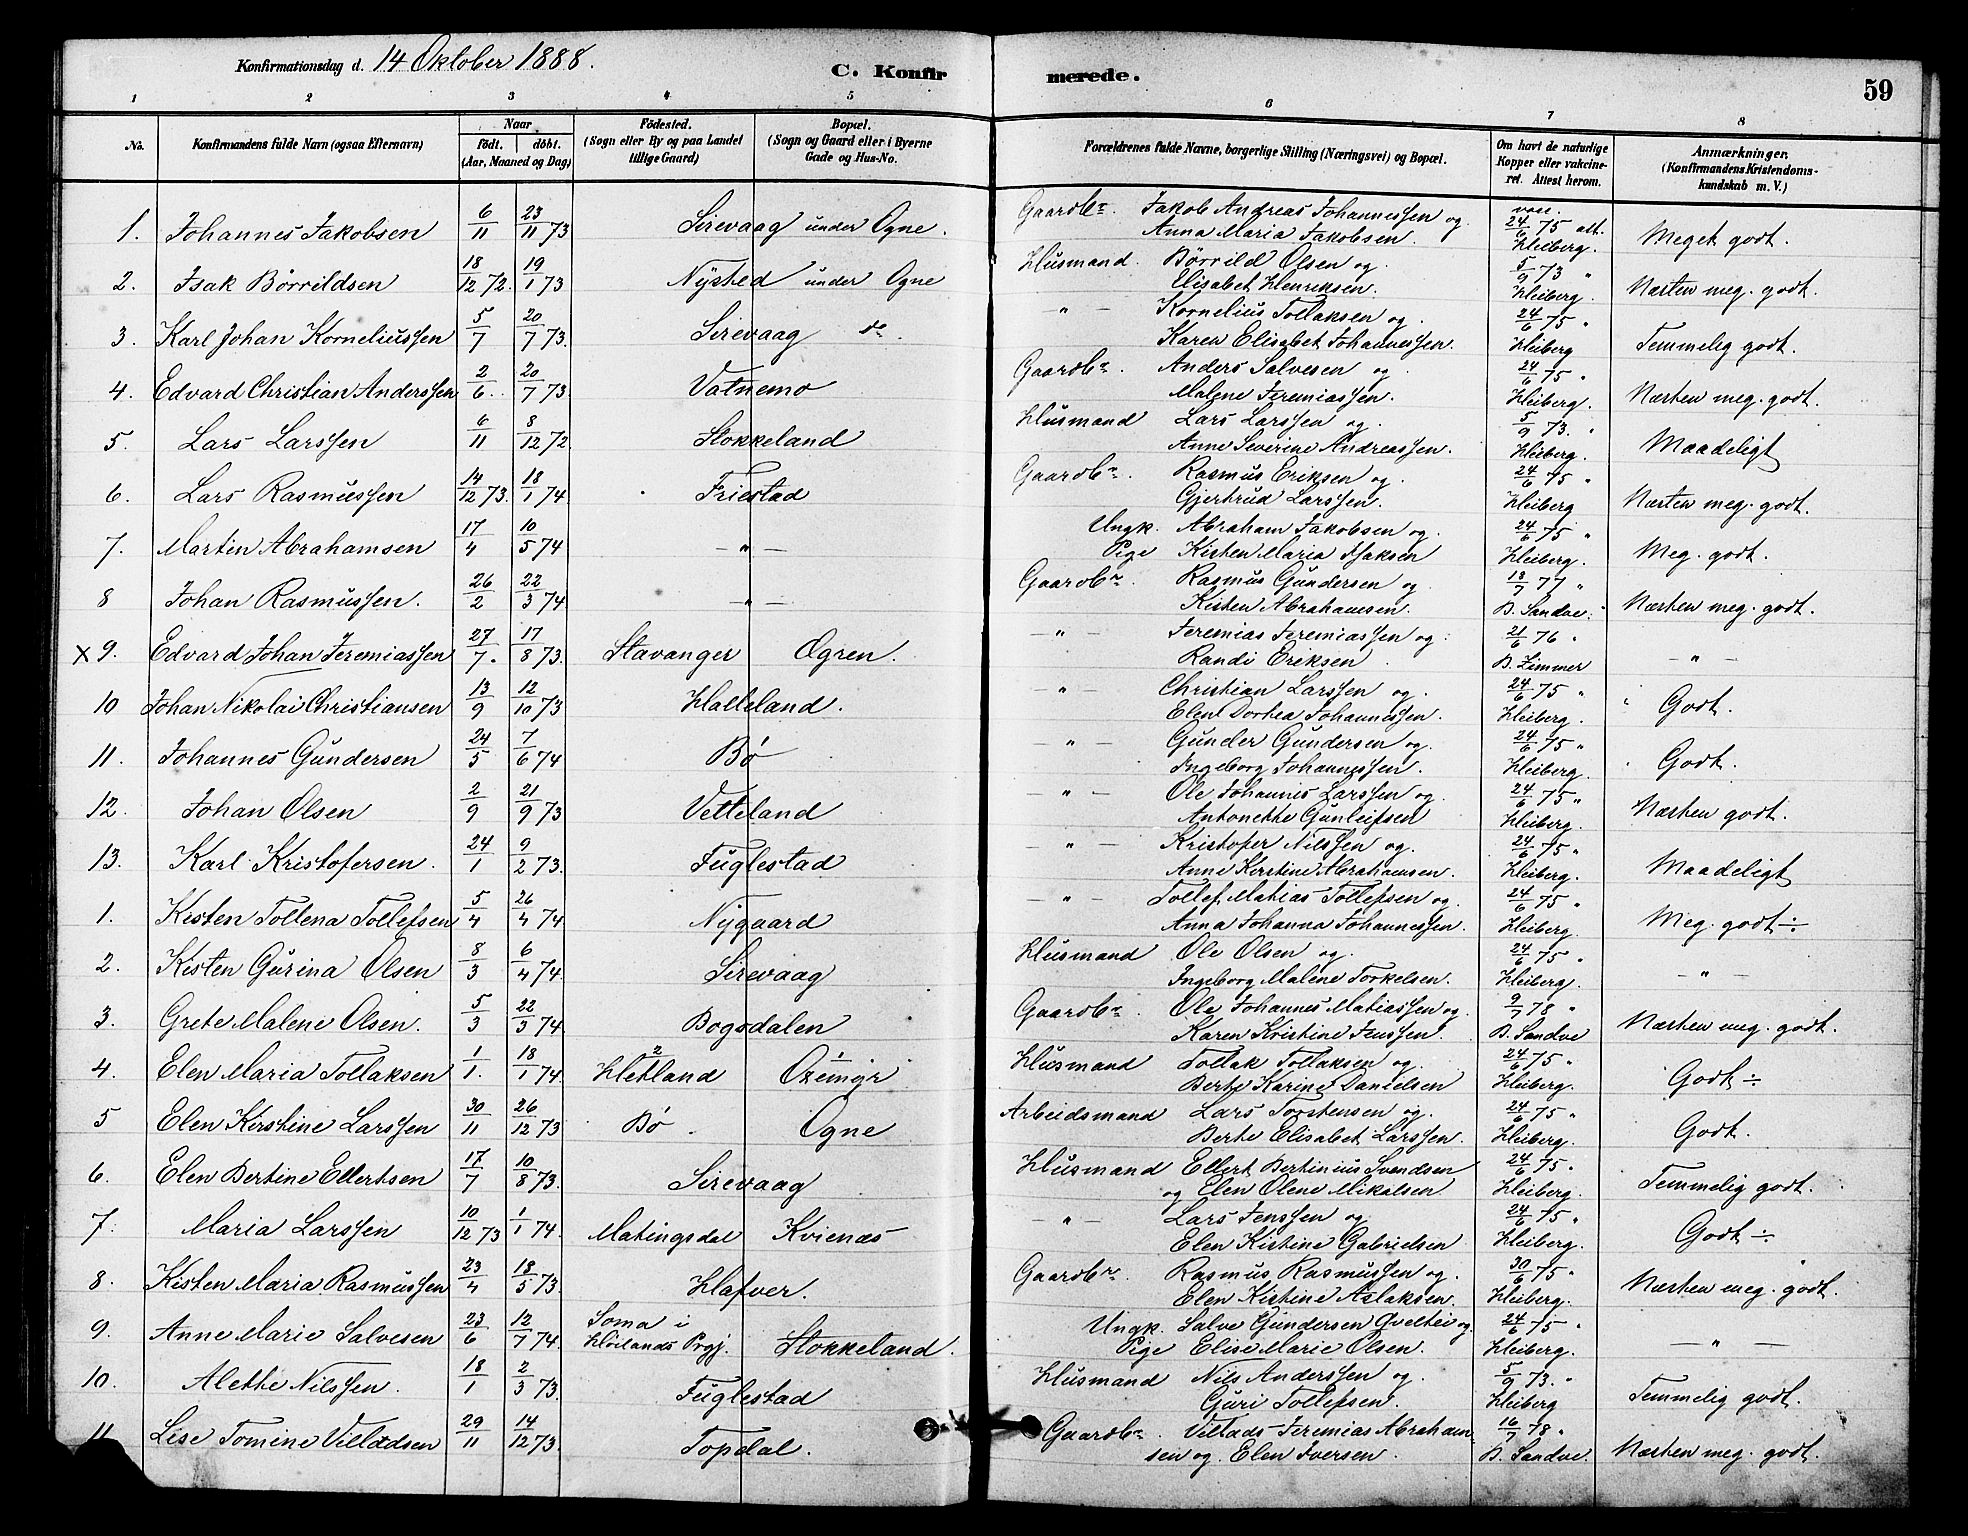 Konfirmationsdag d. 14 Oktober 1888.
C. Konfirmerede.
59
1 2 3 4 5 6 7 8
No. Konfirmandens fulde Navn (ogsaa Efternavn) Naar födt. döbt. (Aar, Maaned og Dag) Födested. (Sogn eller By og paa Landet tillige Gaard) Bopæl. (Sogn og Gaard eller i Byerne Gade og Hus-No. Forældrenes fulde Navne, borgerlige Stilling (Næringsvei) og Bopæl. Om havt de naturlige Kopper eller vakcineret. Attest herom. Anmærkninger. (Konfirmandens Kristendomskundskab m. V.)
1. Johannes Jakobsen 6/11 23/11 73 Sirevaag under Ogne. Gaardbr. Jakob Andreas Johannessen og vacc. 24/6 75 att. Meget godt.
Anna Maria Jakobsen. Heiberg.
2. Isak Börrildsen 18/12 72. 19/1 73 Nysted under Ogne Husmand. Börrild Olsen og 5/9 73 " Næsten meg. godt.
Elisabet Henriksen. Heiberg.
3. Karl Johan Korneliussen 5/7 20/7 73. Sirevaag do. — " — Kornelius Tollaksen og 24/6 75 " Temmelig godt.
Karen Elisabet Johannessen. Heiberg
4. Edvard Christian Anderssen 2/6. 20/7 73. Vatnemo Gaardbr. Anders Salvesen og 24/6 75 " Næsten meg. godt.
Malene Jeremiassen. Heiberg.
5. Lars Larssen 6/11 8/12 72 Stokkeland Husmand Lars Larssen og 5/9 73. " Maadeligt
Anne Severine Andreassen. Heiberg.
6. Lars Rasmussen 14/12 73. 18/1 74. Friestad Gaardbr. Rasmus Eriksen og 24/6 75 " Næsten meg. godt.
Gjertrud Larssen. Heiberg
7. Martin Abrahamsen 17/4 10/5 74 — " — Ungk. Abraham Jakobsen og 24/6 75 " Meg. godt.
Pige Kisten Maria Isaksen Heiberg.
8 Johan Rasmussen. 26/2 22/3 74 — " — Gaardbr. Rasmus Gundersen og 13/7 77 " Næsten meg. godt.
Kisten Abrahamsen. B. Sandve.
X 9. Edvard Johan Jeremiassen 27/7. 17/8 73. Stavanger Ogren. — " — Jeremias Jeremiassen og 21/6 76 " — " —
Randi Eriksen B. Zimmer
10 Johan Nikolai Christiansen 13/9 12/10 73 Halleland. — " — Christian Larssen og 24/6 75 " Godt.
Elen Dorhea Johannessen. Heiberg.
11. Johannes Gundersen 24/5 7/6 74 Bö — " — Gunder Gundersen og 24/6 75 " Godt.
Ingeborg Johannessen. Heiberg.
12. Johan Olsen 2/9 21/9 73 Vetteland — " — Ole Johannes Larssen og 24/6 75 " Næsten godt.
Antonette Gunleifsen Heiberg.
13. Karl Kristofersen. 24/1 9/2 73. Fuglestad — " — Kristofer Nilssen og 24/6 75 " Maadeligt
Anne Kerstine Abrahamsen. Heiberg.
1. Kisten Tollena Tollefsen 5/4 26/4 74 Nygaard — " — Tollef Matias Tollefsen og 24/6 75 " Meg. godt ÷
Anna Johanna Johannessen. Heiberg.
2. Kisten Gurina Olsen 8/3 6/4 74. Sirevaag Husmand Ole Olsen og 24/6 75 " — " —
Ingeborg Malene Torkelsen. Heiberg.
3. Grete Malene Olsen. 5/3 22/3 74. Bogsdalen Gaardbr. Ole Johannes Matiassen og 9/7 78 " Næsten meg. godt.
Karen Kristine Jenssen. B. Sandve
4. Elen Maria Tollaksen 1/1. 18/1 74. Hetland Husmand Tollak Tollaksen og 24/6 75 " Godt ÷
Berte Karine Danielsen Heiberg.
5 Elen Kirstine Larssen 30/11 26/12 73 Bö Ogne Arbeidsmand Lars Torstensen og 24/6 75 " Godt.
Berte Elisabet Larssen. Heiberg.
6. Elen Bertine Ellertsen 17/7 10/8 73. Sirevaag Husmand Ellert Bertinius Svendsen 24/6 75 " Temmelig godt.
og Elen Olene Mikalsen Heiberg.
7. Maria Larssen 10/12 73 1/1 74. Matingsdal Kvienæs — " — Lars Jenssen og 24/6 75 " Godt ÷
Elen Kistine Gabrielsen Heiberg.
8. Kisten Maria Rasmussen 23/4 18/5 73. Hafver. Gaardbr. Rasmus Rasmussen og 30/6 75 " Næsten meg. godt.
Elen Kistine Aslaksen. Heiberg.
9. Anne Marie Salvesen 23/6 12/7 74. Soma i Höilands Prgj. Stokkeland. Ungk. Salve Gundersen og 24/6 75 " — " —
Pige Elise Marie Olsen. Heiberg.
10. Alethe Nilssen. 18/1 2/3 73. Fuglestad Husmand Nils Anderssen og 5/9 73. " Temmelig godt.
Guri Tollefsen. Heiberg
11 Lise Tomine Villadsen 29/11 14/12 73. Topdal. Gaardbr. Villads Jeremias Abraham- 16/7 78 " Næsten meg. godt.
sen og Elen Iversen. B. Sandve.